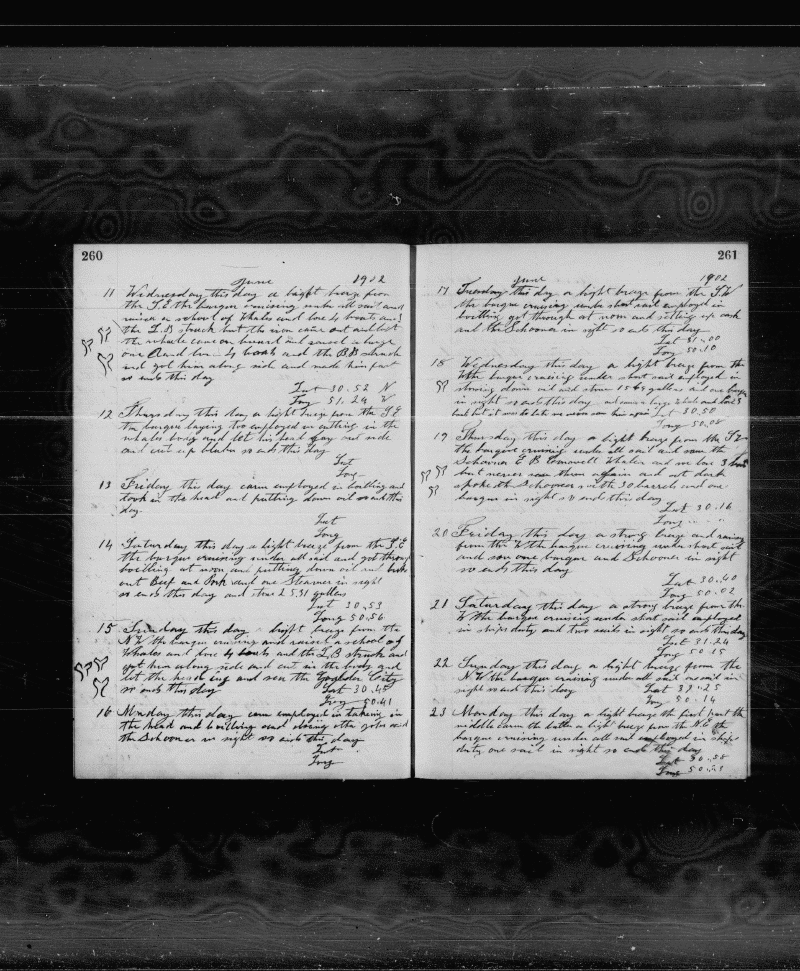 260
June 1902
11 Wednesday this day a light breeze from
the S.E. the barque cruising under all sail and
raised a school of Whales and lore 4 boats and
the L.B struck but the iron came out and lost
the whale come on board and raised a large
one and lore 4 boats and the B.B struck
and got him along side and made him fast
so ends this day
Lat 30.52 N
Long 51.24 W
12 Thursday this day a light breze from the S.E
the barque laying too employed in cutting in the
whales body and let his head lay out side
and cut up blubr so ends this day
Lat
Long
13 Friday this day carm employed in boilling and
took in the head and putting down oil so ends this
day
Lat
Long
14 Saturday this day a light breeze from the S.E
the barque cruising under all sail and got through
boilling at noon and putting down oil and broke
out Beef and Pork and one Steamer in sight
so ends this day and store 2531 gallons
Lat 30.53
Long 50.56
15 Sunday this day a light breze from the
N.W. the barque cruising and raised a school of
Whales and lore 4 boats and the L.B struck and
got him along side and cut in the body and
let the head and seen the City
so ends this day Lat 30.45
Long 50.41
16 Monday this day carm employed in taking in
the head and boilling and
the Schooner in sight so ends this day
Lat
Long
261
June 1902
17 Tuesday this day a light breeze from the S.W
the barque cruising under short sail employed in
boilling got through at noon and setting up cask
and the Schooner in sight so ends this day
Lat 31.00
Long 50.10
18 Wednesday this day a light breeze from the
W the barque cruising under short sail employed in
stowing down oil and stowe 1565 gallons and one barque
in sight so ends this day and seen a large Whale and lore 3
boats but it was to late we never seen him again Lat 30.50
Long 50.08
19 Thursday this day a light breeze from the S.E
the barque cruising under all sail and saw the
Schooner E B Conwell Whaler and we lore 3 boats
but never seen them again and at dark
spoke the Schooner with 30 barrels and one
barque in sight so ends this day
Lat 30.16
Long " "
20 Friday this day a strong breeze and raining
from the W the barque cruising under short sail
and saw one barque and Schooner in sight
so ends this day
Lat 30.40
Long 50.02
21 Saturday this day a strong breeze from the
W the barque cruising under short sail employed
in ships duty and two sails in sight so ends this day
Lat 31.24
Long 50.15
22 Sunday this day a light breeze from the
N.W the barque cruising under all sail one sail in
sight so ends this day Lat 31.25
Long 50.14
23 Monday this day a light breeze the first part the
middle carm the latter a light breze from the N.E. the
barque cruising under all sail employed in ships
duty one sail in sight so ends this day
Lat 30.58
Long